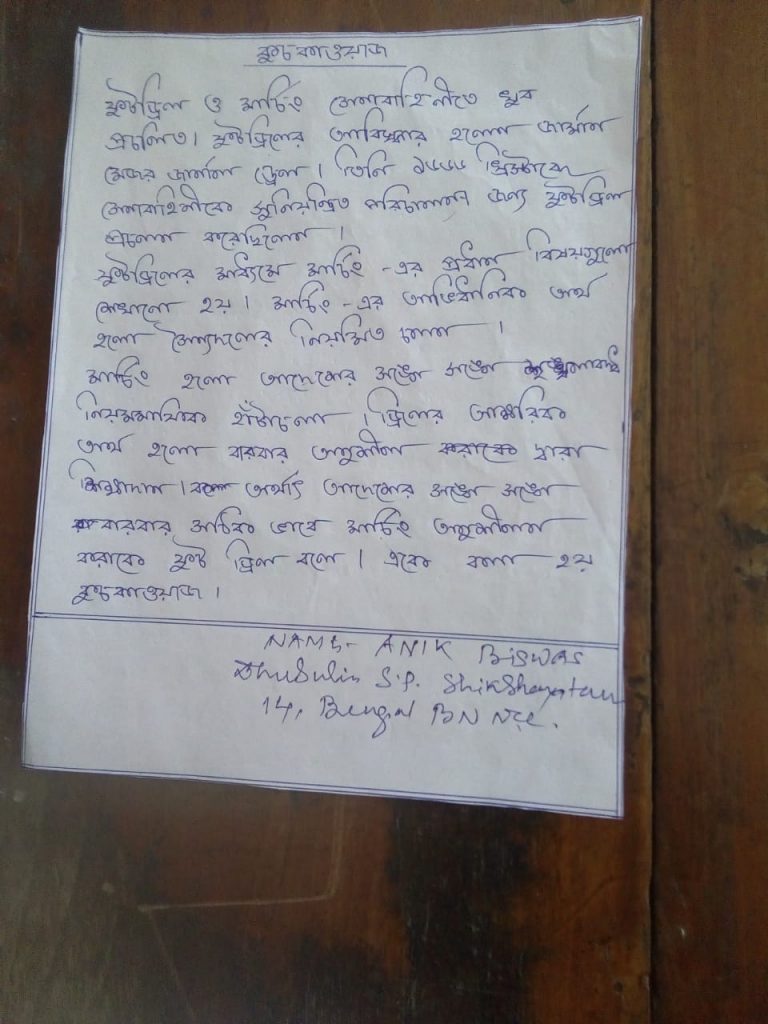 কুচকাওয়াজ
ফুটড্রিল ও মার্চিং সেনাবাহিনীতে খুব
প্রচলিত। ফুটড্রিলের আবিষ্কার হলো জার্মান
মেজর জার্নাল ড্রেল। তিনি ১৬৬৬ খ্রিস্টাব্দে
সেনাবাহিনীকে সুনিয়ন্ত্রিত পরিচালনা জন্য ফুটড্রিল
প্রচলন করেছিলেন।
ফুটড্রিলের মাধ্যমে মার্চিং -এর প্রধান বিষয়গুলো
শেখানো হয়। মার্চিং -এর আভিধানিক অর্থ
হলো সৈন্যদলের নিয়মিত চলন।
মার্চিং হলো আদেশের সঙ্গে সঙ্গে শৃঙ্খলাবদ্ধ
নিয়মমাফিক হাঁটাচলা। ড্রিলের আক্ষরিক
অর্থ হলো বারবার অনুশীলন করাকে দ্বারা
শিক্ষাদান। অর্থাৎ আদেশের সঙ্গে সঙ্গে
বারবার সঠিক ভাবে মার্চিং অনুশীলন
করাকে ফুট ড্রিল বলে। একে বলা হয়
কুচকাওয়াজ।
NAME- ANIK BISWAS
Dhubulia S.P. Shikshayatan
14, Bengal BN Ncc.